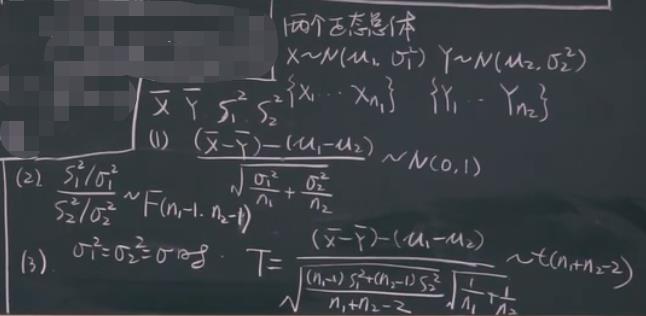 两个正态总体
X~N(μ₁, σ₁²) Y~N(μ₂, σ₂²)
X̄ Ȳ S₁² S₂² {X₁ ⋯ Xn₁} {Y₁ ⋯ Yn₂}
(1) ((X̄-Ȳ)-(μ₁-μ₂)) / √(σ₁²/n₁ + σ₂²/n₂) ~N(0,1)
(2) (S₁²/σ₁²) / (S₂²/σ₂²) ~ F(n₁-1, n₂-1)
(3) σ₁²=σ₂²=σ² 时. T= ((X̄-Ȳ)-(μ₁-μ₂)) / (√(((n₁-1)S₁²+(n₂-1)S₂²) / (n₁+n₂-2)) √(1/n₁ + 1/n₂)) ~t(n₁+n₂-2)